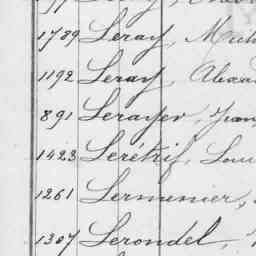 1789 Leray, Mich
1192 Leray, Alexa
891 Lerayer, Jean
1423 Lerétrif, Loui
1261 Lermenier,
1307 Lerondel,